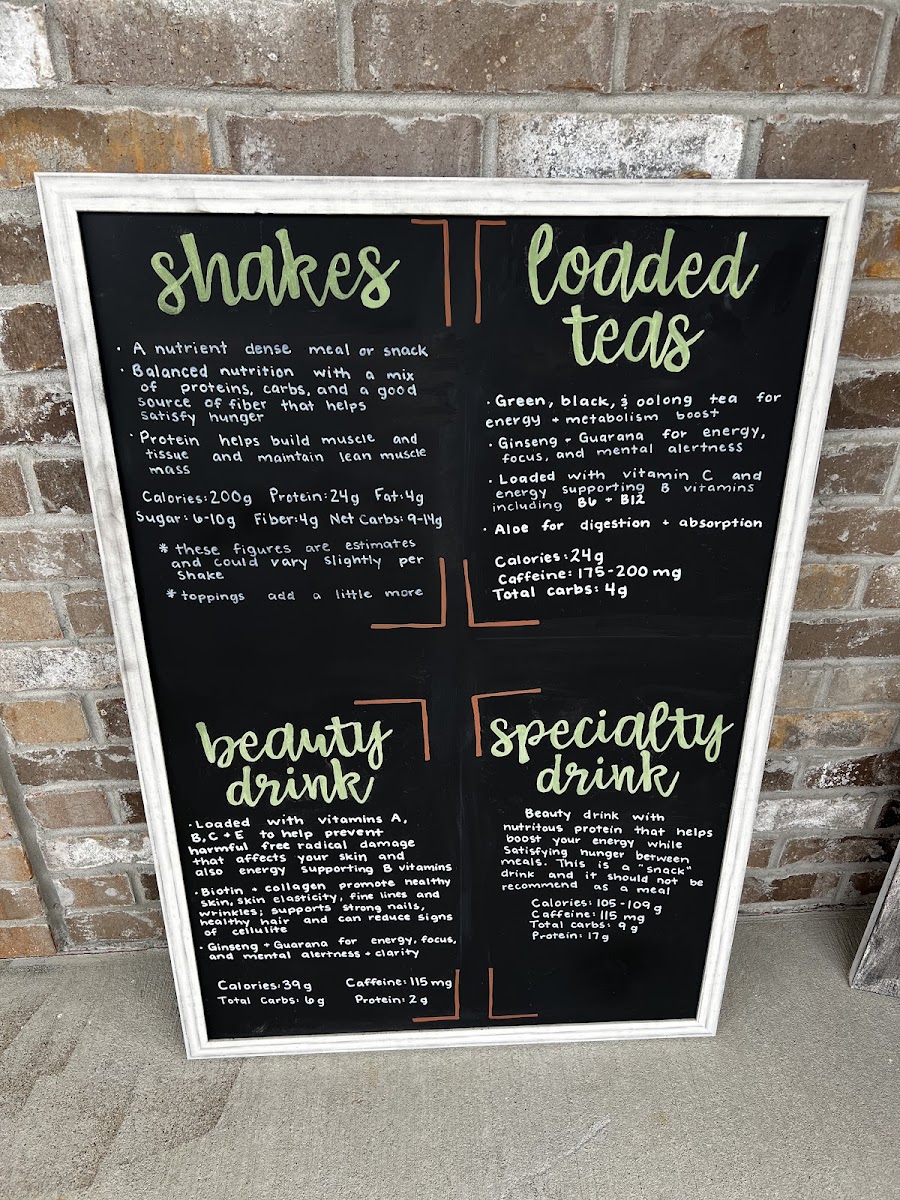 shakes
• A nutrient dense meal or snack
• Balanced nutrition with a mix
of proteins, carbs, and a good
source of fiber that helps
satisfy hunger
• Protein helps build muscle and
tissue and maintain lean muscle
mass
Calories: 200g Protein: 24g Fat: 4g
Sugar: 6-10g Fiber: 4g Net Carbs: 9-14g
* these figures are estimates
and could vary slightly per
shake
* toppings add a little more
loaded
teas
• Green, black, & oolong tea for
energy + metabolism boost
• Ginseng + Guarana for energy,
focus, and mental alertness
• Loaded with vitamin C and
energy supporting B vitamins
including B6 + B12
• Aloe for digestion + absorption
Calories: 24g
Caffeine: 175-200 mg
Total carbs: 4g
beauty
drink
• Loaded with vitamins A,
B, C + E to help prevent
harmful free radical damage
that affects your skin and
also energy supporting B vitamins
• Biotin + collagen promote healthy
skin, skin elasticity, fine lines and
wrinkles; supports strong nails,
healthy hair and can reduce signs
of cellulite
• Ginseng + Guarana for energy, focus,
and mental alertness + clarity
Calories: 39g Caffeine: 115 mg
Total Carbs: 6g Protein: 2g
specialty
drink
Beauty drink with
nutritous protein that helps
boost your energy while
Satisfying hunger between
meals. This is a "snack"
drink and it should not be
recommend as a meal
Calories: 105-109 g
Caffeine: 115 mg
Total carbs: 9 g
Protein: 17g